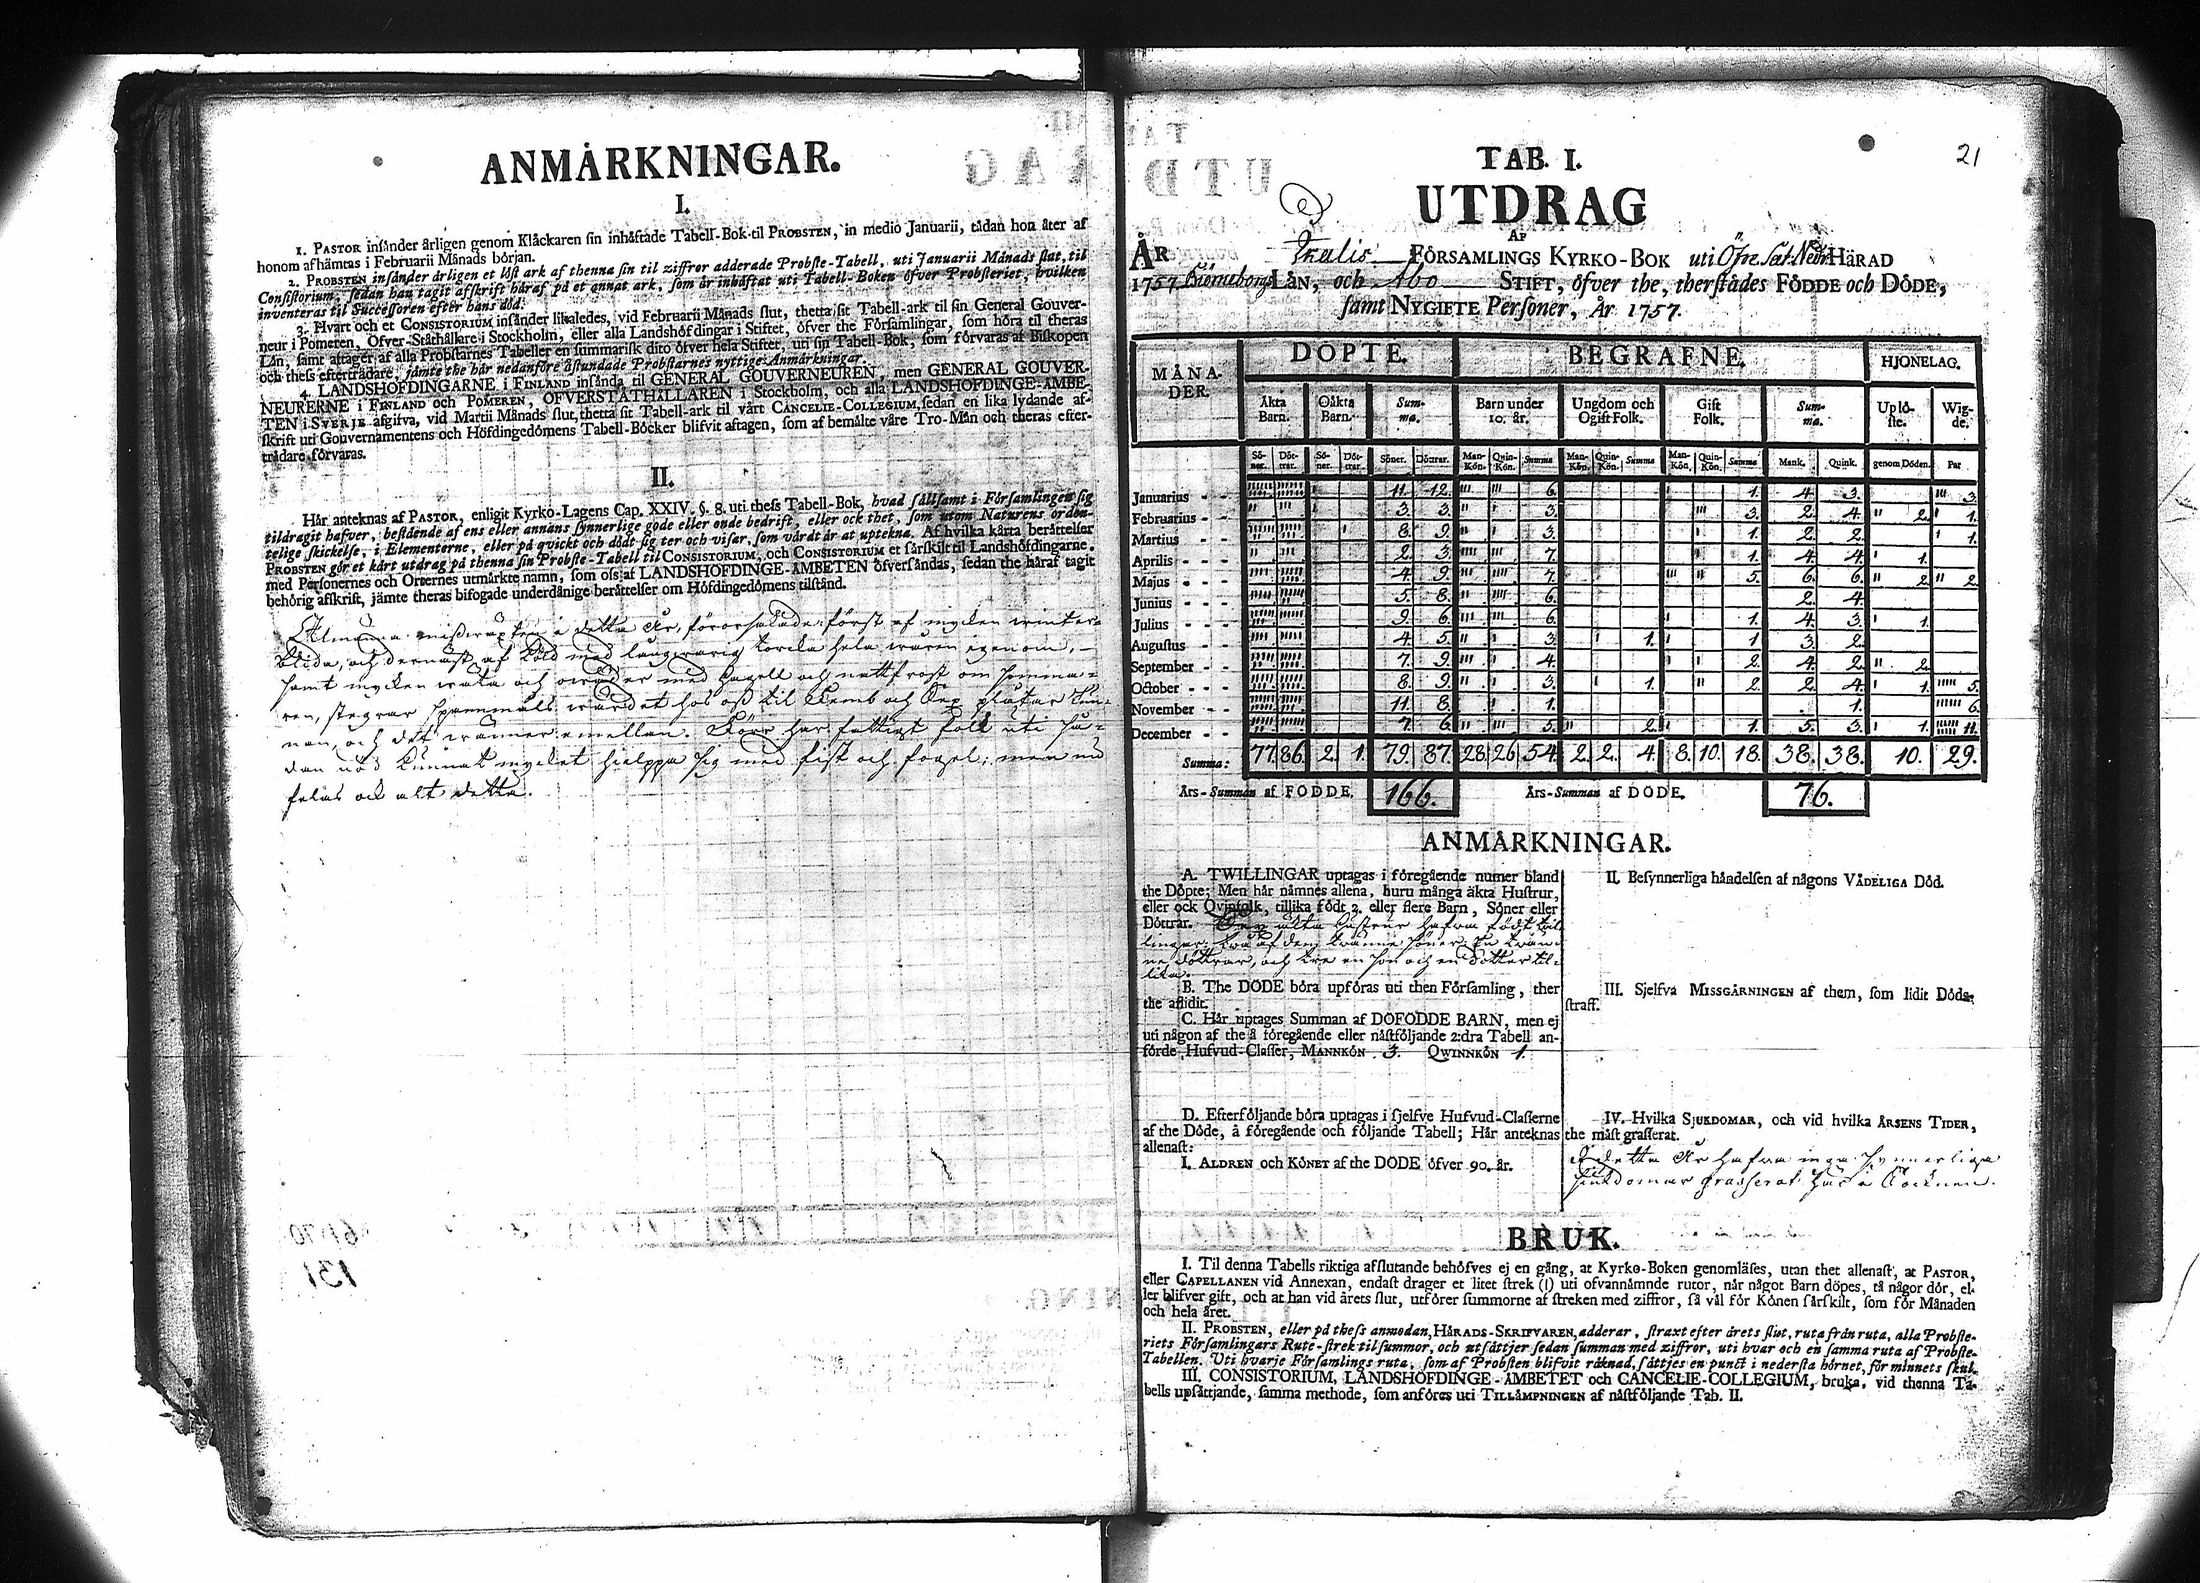 ANMÅRKNINGAR.
I.
1. PASTOR insånder årligen genom Klåckaren sin inhåftade Tabell-Bok til PROBSTEN, in medio Januarii, tådan hon åter af
honom afhåmtas i Februarii Månads början.
2. PROBSTEN insånder årligen et löst ark af thenna sin til ziffror adderade Probste-Tabell, uti Januarii Månads slut, til
Consistorium, sedan han tagit afskrift håraf på et annat ark, som år inhåftat uti Tabell-Boken öfver Probsteriet, hvilken
inventeras til Successoren efter hans död.
3. Hvart och et CONSISTORIUM insånder likaledes, vid Februarii Månads slut, thetta sit Tabell-ark til sin General Gouver-
neur i Pomeren, Öfver-Ståthållare i Stockholm, eller alla Landshöfdingar i Stiftet, öfver the Församlingar, som höra til theras
Lån, samt aftager af alla Probstarnes Tabeller en summarisk dito öfver hela Stiftet, uti sin Tabell-Bok, som förvaras af Biskopen
och thess efterträdare, jämte the hår nedanföre åstundade Probstarnes nyttige Anmärkningar.
4. LANDSHÖFDINGARNE i FINLAND insånda til GENERAL GOUVERNEUREN, men GENERAL GOUVER-
NEURERNE i FINLAND och POMEREN, ÖFVERSTÅTHÅLLAREN i Stockholm, och alla LANDSHÖFDINGE-ÅMBE-
TEN i SVERJE afgifva, vid Martii Månads slut, thetta sit Tabell-ark til vårt CANCELIE-COLLEGIUM, sedan en lika lydande af-
skrift uti Gouvernamentens och Höfdingedömens Tabell-Böcker blifvit aftagen, som af bemälte våre Tro-Mån och theras efter-
trådare förvaras.
II.
Hår anteknas af PASTOR, enligit Kyrko-Lagens Cap. XXIV. §. 8. uti thess Tabell-Bok, hvad sållsamt i Församlingen sig
tildragit hafver, bestående af ens eller annans synnerlige gode eller onde bedrift, eller ock thet, som utom Naturens orden-
telige skickelse, i Elementerne, eller på qvickt och dödt sig ter och visar, som vårdt år at uptekna. Af hvilka kårta beråttelser
PROBSTEN gör et kårt utdrag på thenna sin Probste-Tabell til CONSISTORIUM, och CONSISTORIUM et sårskilt til Landshöfdingarne,
med Personernes och Orternes utmårkte namn, som oss af LANDSHÖFDINGE-ÅMBETEN öfversåndas, sedan the håraf tagit
behörig afskrift, jämte theras bifogade underdånige beråttelser om Höfdingedömens tilstånd.
Almänna missväxten i detta År, förorsakade först af mycken winter-
blida, och dernäst af köld med långwarig torcka hela wåren igenom,
samt mycken wäta och owäder med hagell och nattfrost om somma-
ren, stegrar spannmåls wärdet hos oss til Femb och Sex platar tun-
nan, och det wänner emellan. Förr har fattigt folk uti så-
dan nöd kunnat mycket hielppa sig med fisk och fogel; men nu
felas ock alt detta.
21
TAB. I.
UTDRAG
AF
ÅR FÖRSAMLINGS KYRKO-BOK uti Öfre Sat: Nedr HÄRAD
1757 Biörneborgs LÅN, och Åbo STIFT, öfver the, therstådes FÖDDE och DÖDE,
samt NYGIFTE Personer, År 1757.
MÅNA-DER. DÖPTE. BEGRAFNE. HJONELAG.
Åkta Barn. Oåkta Barn. Summa. Barn under 10. år. Ungdom och Ogift Folk. Gift Folk. Summa. Uplöste. Wigde.
Söner. Döttrar. Söner. Döttrar. Söner. Döttrar. Man-Kön. Quin-Kön. Summa Man-Kön. Quin-Kön. Summa Man-Kön. Quin-Kön. Summa Mank. Quink. genom Döden. Par
Januarius - - 11. 12. 6. 1. 4. 3. 3.
Februarius - - 3. 3. 3. 3. 2. 4. 2. 1.
Martius - - 8. 9. 3. 1. 2. 2. 1.
Aprilis - - - 2. 3. 7. 1. 4. 4. 1.
Majus - - - 4. 9. 7. 5. 6. 6. 2. 2.
Junius - - - 5. 8. 6. 2. 4.
Julius - - - 9. 6. 6. 1. 4. 3. 1.
Augustus - - 4. 5. 3. 1. 1 3. 2.
September - - 7. 9. 4. 2. 4. 2. 2.
October - - - 8. 9. 3. 1. 2. 2. 4. 1. 5.
November - - 11. 8. 1. 1. 6.
December - - 7. 6. 5. 2. 1. 5. 3. 1. 11.
Summa: 77. 86. 2. 1. 79. 87. 28. 26 54. 2. 2. 4. 8. 10. 18. 38. 38. 10. 29.
Års-Summan af FÖDDE. 166. Års-Summan af DÖDE. 76.
ANMÅRKNINGAR.
A. TWILLINGAR uptagas i föregående numer bland
the Döpte; Men hår nåmnes allena, huru många åkta Hustrur,
eller ock Qvinfolk, tillika födt 2. eller flere Barn, Söner eller
Döttrar. Sex äkta hustrur hafwa födt twil-
lingar: två af dem tvänne söner, En tvän-
ne döttrar, och tre en son och en dotter til-
lika.
B. The DÖDE böra upföras uti then Församling, ther
the aflidit.
C. Hår uptages Summan af DÖFÖDDE BARN, men ej
uti någon af the å föregående eller nåstföljande 2:dra Tabell an-
förde Hufvud-Classer, MANNKÖN 3. QWINNKÖN 1.
D. Efterföljande böra uptagas i sjelfve Hufvud-Classerne
af the Döde, å föregående och följande Tabell; Hår anteknas
allenast:
I. ÅLDREN och KÖNET af the DÖDE öfver 90. år.
II. Besynnerliga håndelsen af någons VÅDELIGA Död.
III. Sjelfva MISSGÅRNINGEN af them, som lidit Döds-
straff.
IV. Hvilka SJUKDOMAR, och vid hvilka ÅRSENS TIDER,
the måst grasserat.
I detta År hafwa inga synnerliga
siukdomar grasserat här i Socknen.
BRUK.
I. Til denna Tabells riktiga afslutande behöfves ej en gång, at Kyrko-Boken genomläses, utan thet allenast, at PASTOR,
eller CAPELLANEN vid Annexan, endast drager et litet strek (|) uti ofvannåmnde rutor, når något Barn döpes, tå någor dör, el-
ler blifver gift, och at han vid årets slut, utförer summorne af streken med ziffror, så vål för Könen sårskilt, som för Månaden
och hela året.
II. PROBSTEN, eller på thess anmodan, HÅRADS-SKRIFVAREN, adderar, straxt efter årets slut, ruta från ruta, alla Probste-
riets Församlingars Rute-strek tilsummor, och utsåttjer sedan summan med ziffror, uti hvar och en samma ruta af Probste-
Tabellen. Uti hvarje Församlings ruta, som af Probsten blifvit råknad, såttjes en punct i nedersta hörnet, för minnets skul.
III. CONSISTORIUM, LANDSHÖFDINGE-ÅMBETET och CANCELIE-COLLEGIUM, bruka, vid thenna Ta-
bells upsåttjande, samma methode, som anföres uti TILLÅMPNINGEN af nåstföljande Tab. II.